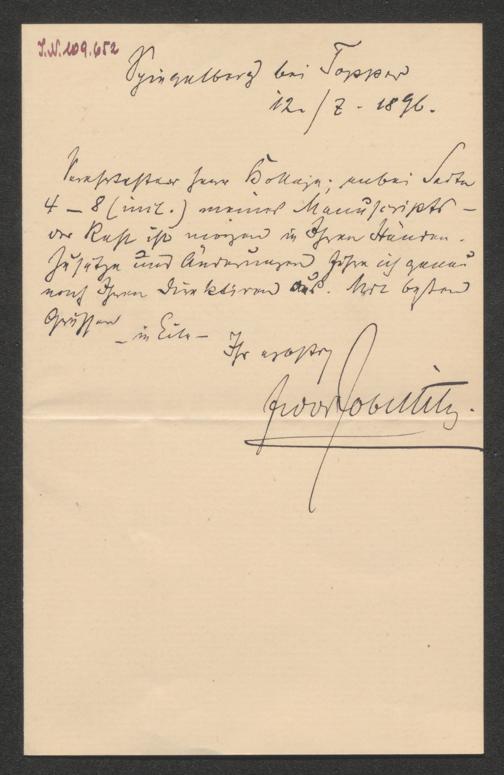 J.N. 109.652
Spiegelberg bei Topper
12./7. 1896.
Verehrtester Herr Kollege; anbei Seite
4 – 8 (incl.) meines Manuscripts –
der Rest ist morgen in Ihren Händen.
Zusätze und Änderungen führe ich genau
nach Ihren Direktiven aus. Mit besten
Grüßen
– in Eile –
Ihr ergebster
Fedor Zobeltitz.